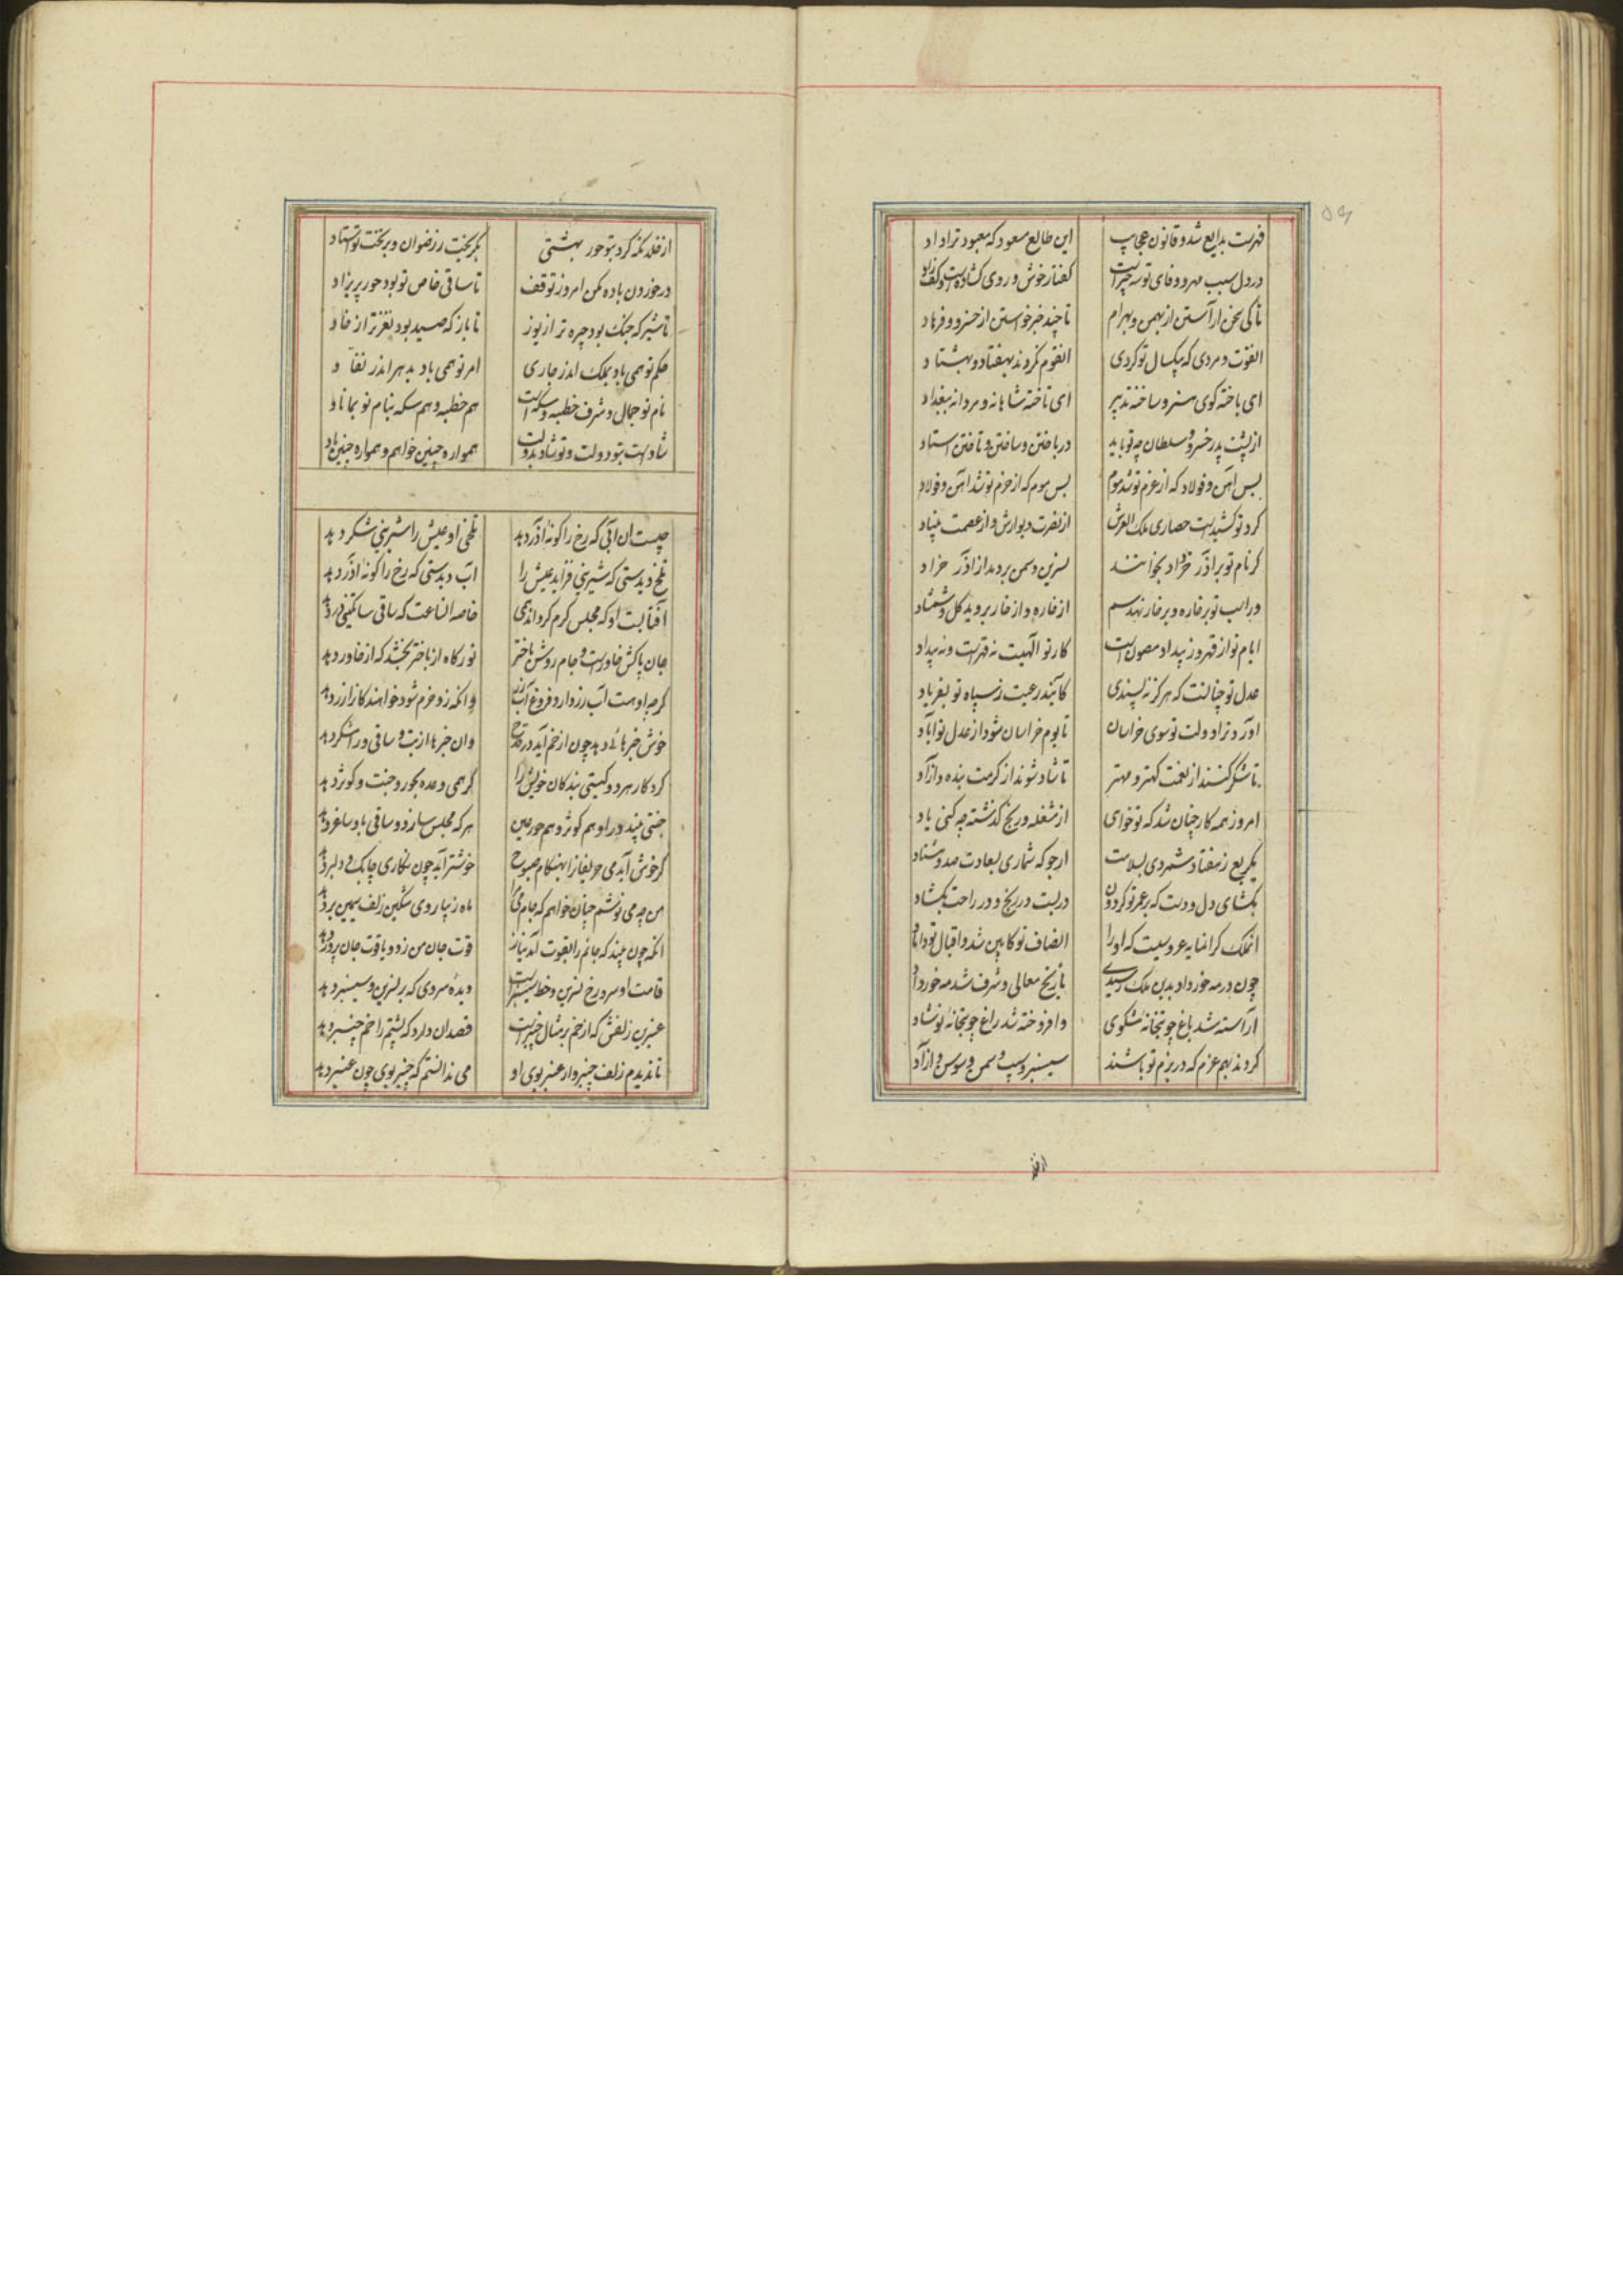 فهرست بدایع شد و قانون عجایب این طالع مسعود که معبود ترا داد
در دل سبب مهر و وفای تو سه چیزاست گفتار خوش و روی گشاده‌ست و کف راد
تا کی سخن آراستن از بهمن و بهرام تا چند خبر خواستن از خسرو و فرهاد
انقوت و مردی که بیکسال تو کردی انقوم نکردند بهفتاد و بهشتاد
ای باخته گوی هنر و ساخته تدبیر ای تاخته شاهانه و مردانه ببغداد
از پشت پدر خسرو و سلطان چو تو باید در بافتن و ساختن و تافتن استاد
بس آهن و فولاد که از عزم تو شد موم بس موم که از حزم تو شد آهن و فولاد
گرد تو کشیدست حصاری ملک العرش از نصرت دیوارش و از عصمت بنیاد
گر نام تو بر آذر خرداد بخوانند نسرین و سمن بردمد از آذر خرداد
ور اسب تو بر خاره و بر خار نهد سم از خاره و از خار بروید گل و شمشاد
ایام تو از قهر و ز بیداد مصون است کار تو الهیت نه قهراست و نه بیداد
عدل تو چنانست که هرگز نپسندی کایند رعیت ز سپاه تو بفریاد
آورد ترا دولت تو سوی خراسان تا بوم خراسان شود از عدل تو آباد
تا شکر کنند از نعمت کهتر و مهتر تا شاد شوند از کرمت بنده و آزاد
امروز همه کار چنان شد که تو خواهی از مشغله و رنج گذشته چه کنی یاد
یکربع ز هفتاد شمردی بسلامت ارجو که شماری بسعادت صد و هشتاد
بگشای دل و دست که بر عمر تو گردون دربست در رنج و در راحت بگشاد
انملک گرانمایه عروسیست که او را انصاف تو کابین شد و اقبال تو داماد
چون در مه خرداد بدین ملک رسیدی تاریخ معالی و شرف شد مه خرداد
آراسته شد باغ چو بتخانه مشکوی وافروخته شد راغ چو بتخانه نوشاد
کردند بهم عزم که در بزم تو باشند سیسنبر و سیب و سمن و سوسن آزاد
از خلد نگه کرد بتو حور بهشتی بگریخت ز رضوان و بر تخت تو استاد
در خوردن باده مکن امروز توقف تا ساقی خاص تو بود حور پریزاد
تا شیر که جنگ بود چیره تر از یوز تا باز که صید بود نغزتر از خاد
حکم تو همی باد بملک اندر جاری امر تو همی باد بدهر اندر نفاد
نام تو جمال و شرف خطبه و سکه است هم خطبه و هم سکه بنام تو بماناد
شادست بتو دولت و تو شاد بدولت همواره چنین خواهم و همواره چنین باد
چیست ان آبی که رخ را گونه آذر دهد تلخی او عیش را شیرینی شکر دهد
تلخ دیدستی که شیرینی فزاید عیش را آب دیدستی که رخ را گونه آذر دهد
آفتابست او که مجلس گرم گرداند همی خاصه انساعت که ساقی ساتگینی در دهد
جان پاکش خاورست و جام روشن باختر نور گاه از باختر بخشد گه از خاور دهد
گرچه او هست آب رز دارد فروغ آب زر وانکه زو خرم شود خواهنده کارا زر دهد
خوش خبرهائی دهد چون از خم آید در قدح وان خبرها از بت و ساقی و رامشگر دهد
کردگار هر دو گیتی بندگان خویش را گر همی وعده بحور و جنت و کوثر دهد
جنتی بیند در او هم کوثر و هم حور عین هر که مجلس سازد و ساقی باو ساغر دهد
گر خوش آید می حریفانرا بهنگام صبوح خوشتر آید چون نگاری چابک و دلبر دهد
من چو می نوشم چنان خواهم که جام می مرا ماه زیبا روی مشکین زلف سیمین بر دهد
انکه چون بیند که جانم را بقوت آمد نیاز قوت جان من ز دو یاقوت جان پرور دهد
قامت او سرو و رخ نسرین و خط سیسنبرست دیده سروی که بر نسرین و سیسنبر دهد
عنبرین زلفش که از خم بر مثال چنبرست قصد ان دارد که پشتم را خم چنبر دهد
تا ندیدم زلف چنبروار عنبر بوی او می ندانستم که چنبر بوی چون عنبر دهد
از